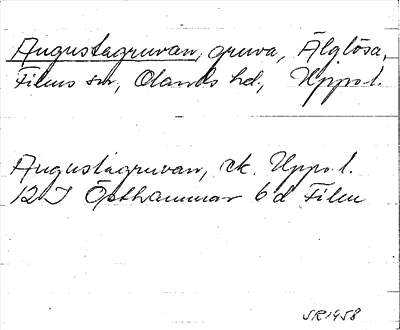 Augustagruvan, gruva, Älglösa,
Films sn, Olands hd, Upps. l.
Augustagruvan, ek. Upps. l.
12 I Östhammar 6 d Film
SR 1958